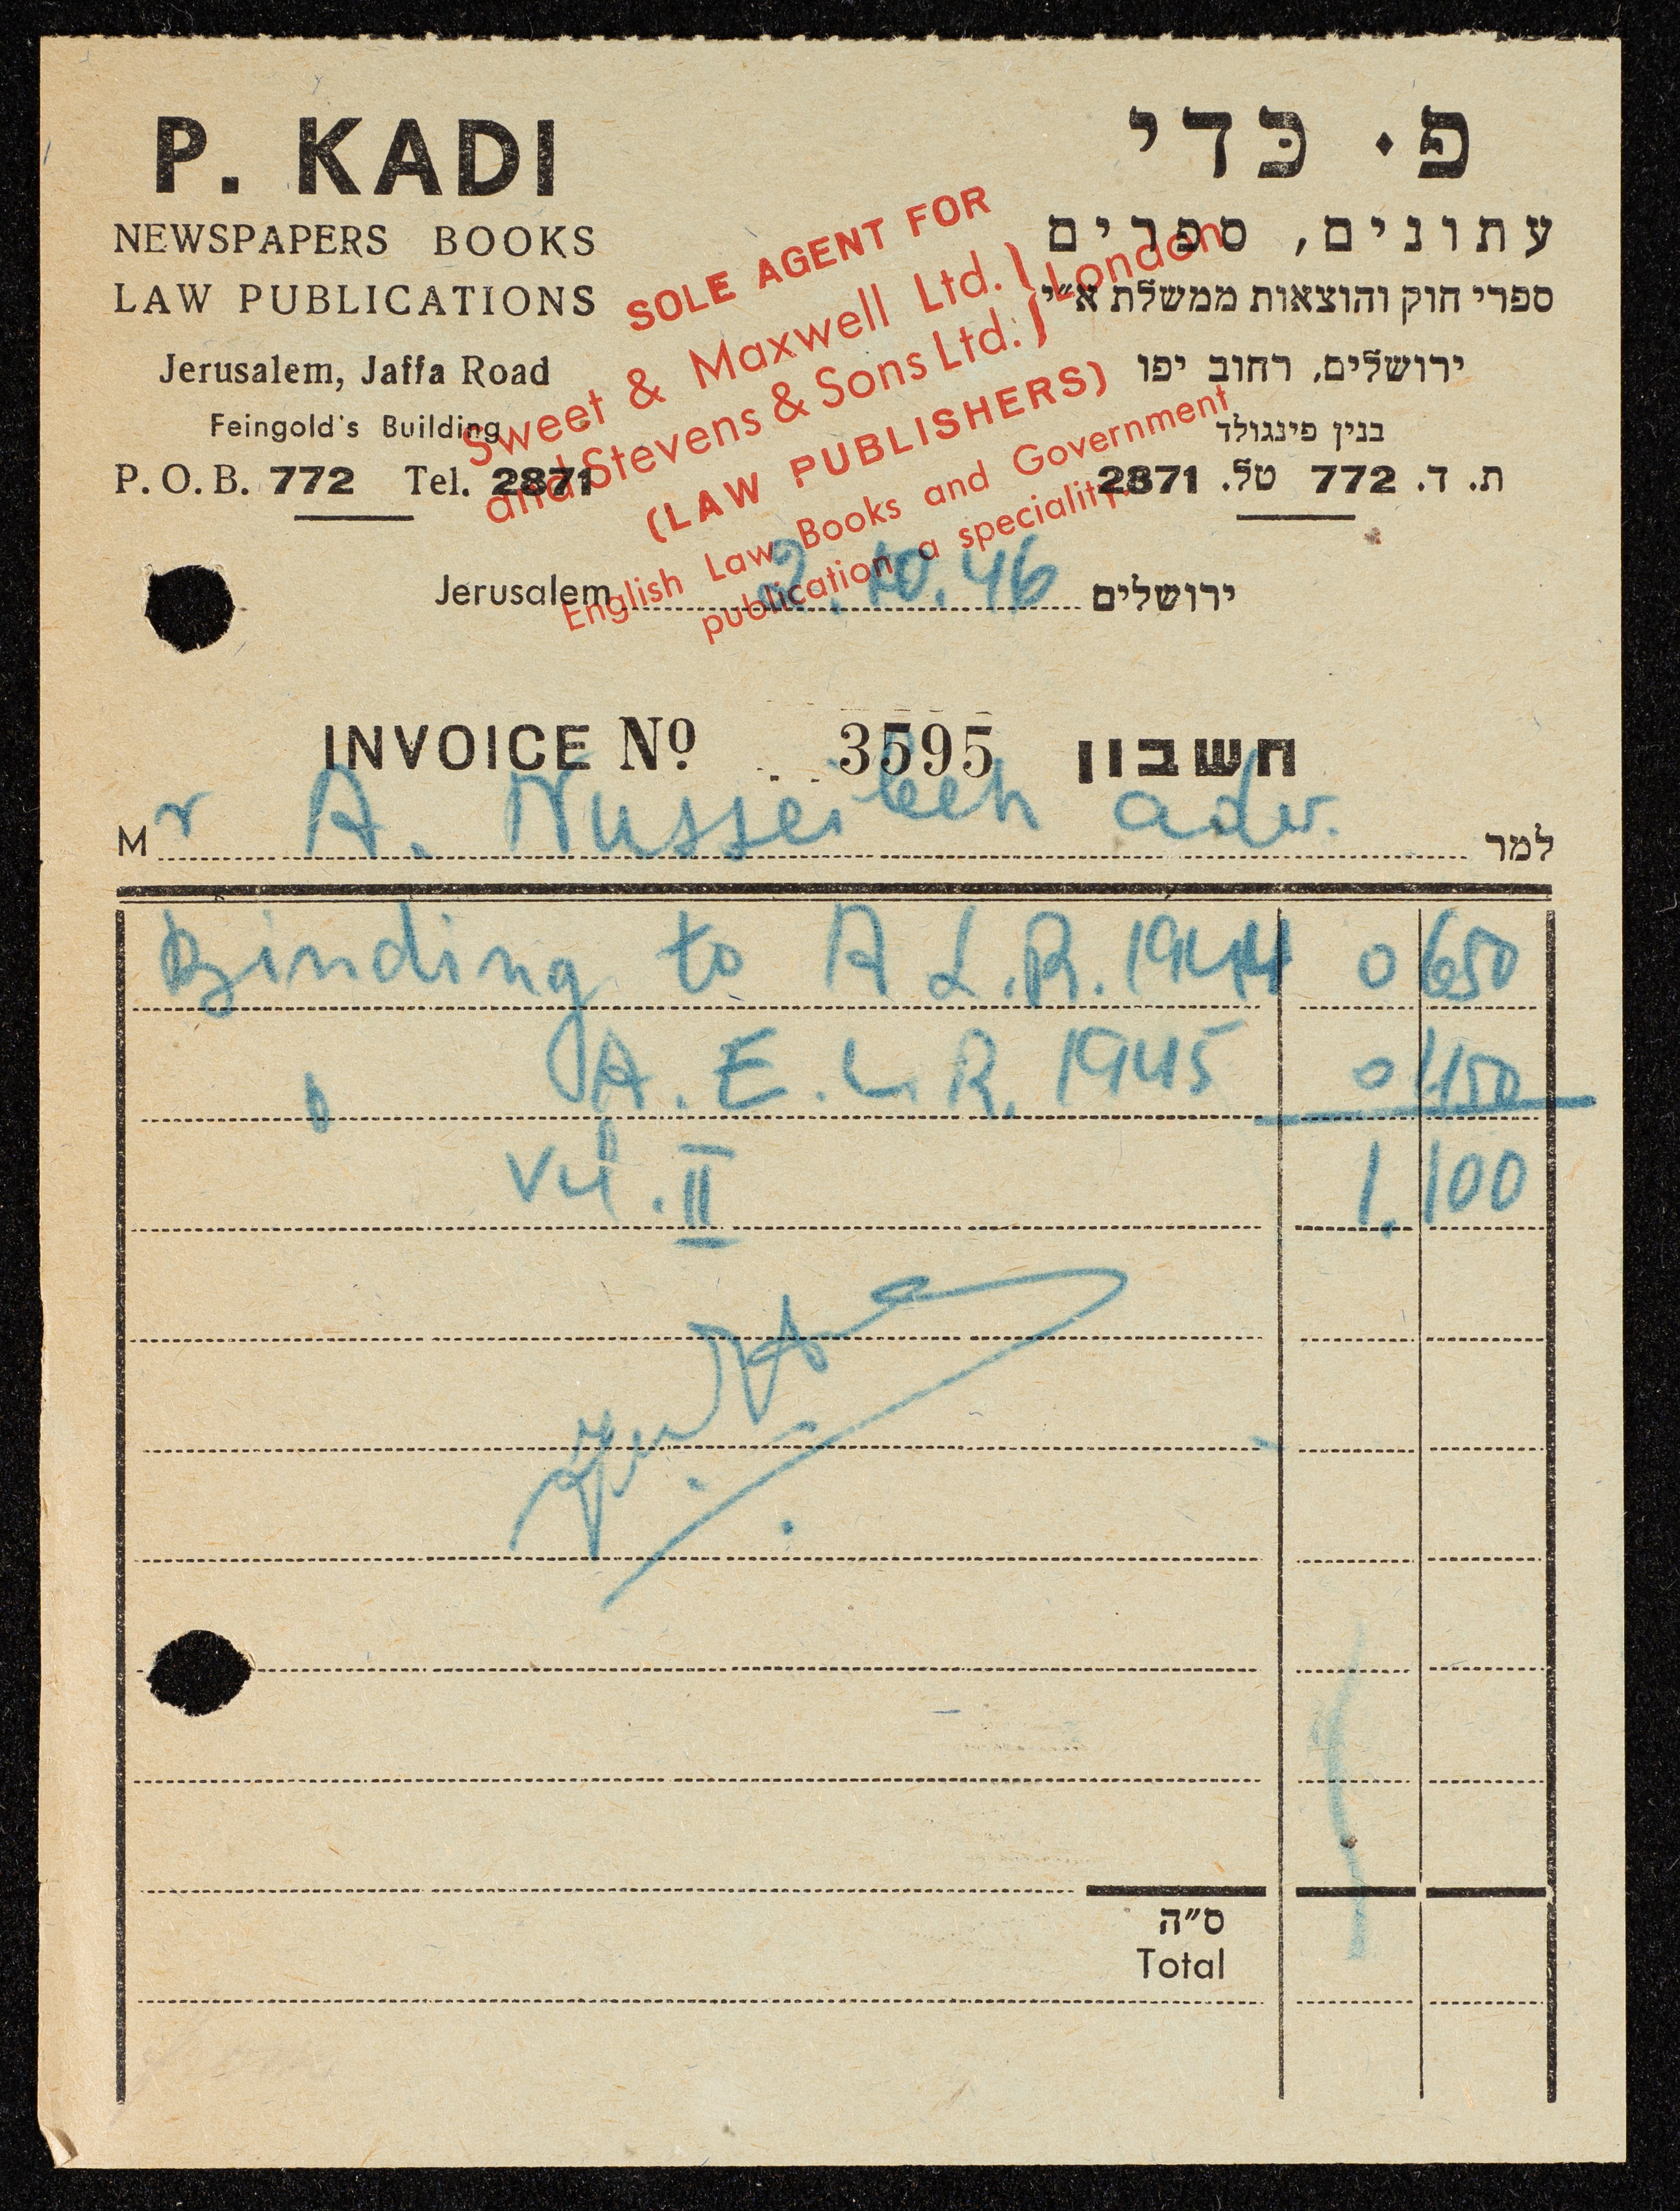 P. KADI
NEWSPAPERS BOOKS
LAW PUBLICATIONS
Jerusalem, Jaffa Road
Feingold's Building
P.O.B. 772 Tel. 2871
פ. כּדי
עתונים, ספרים
ספרי חוק והוצאות ממשלת א״י
ירושלים, רחוב יפו
בנין פינגולד
ת. ד. 772 טל. 2871
SOLE AGENT FOR
Sweet & Maxwell Ltd. } London
and Stevens & Sons Ltd. }
(LAW PUBLISHERS)
English Law Books and Government
publication a speciality.
Jerusalem 2.10.46 ירושלים
INVOICE Nº 3595 חשבון
Mr A. Nusseibeh adv. למר
Binding to A L.R. 1944 0 650
" A.E.L.R. 1945 0 450
II 1.100
ס״ה
Total